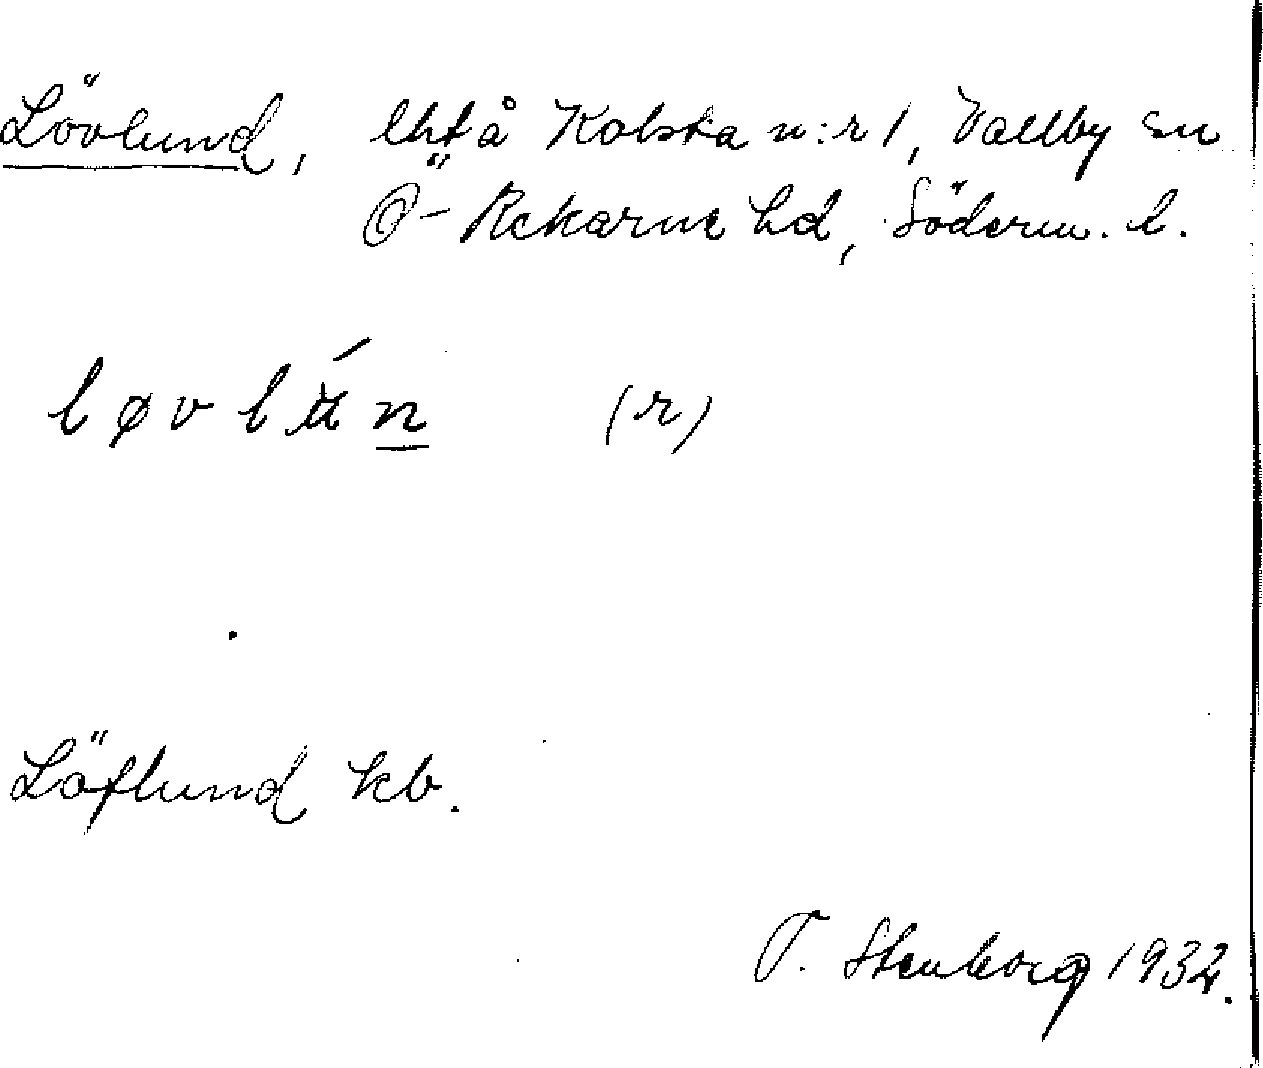 Lövlund, lht å Kolsta n:r 1, Vallby sn
Ö-Rekarne hd, Söderm. l.
løvlún (r)
Löflund kb.
T. Stenborg 1932.